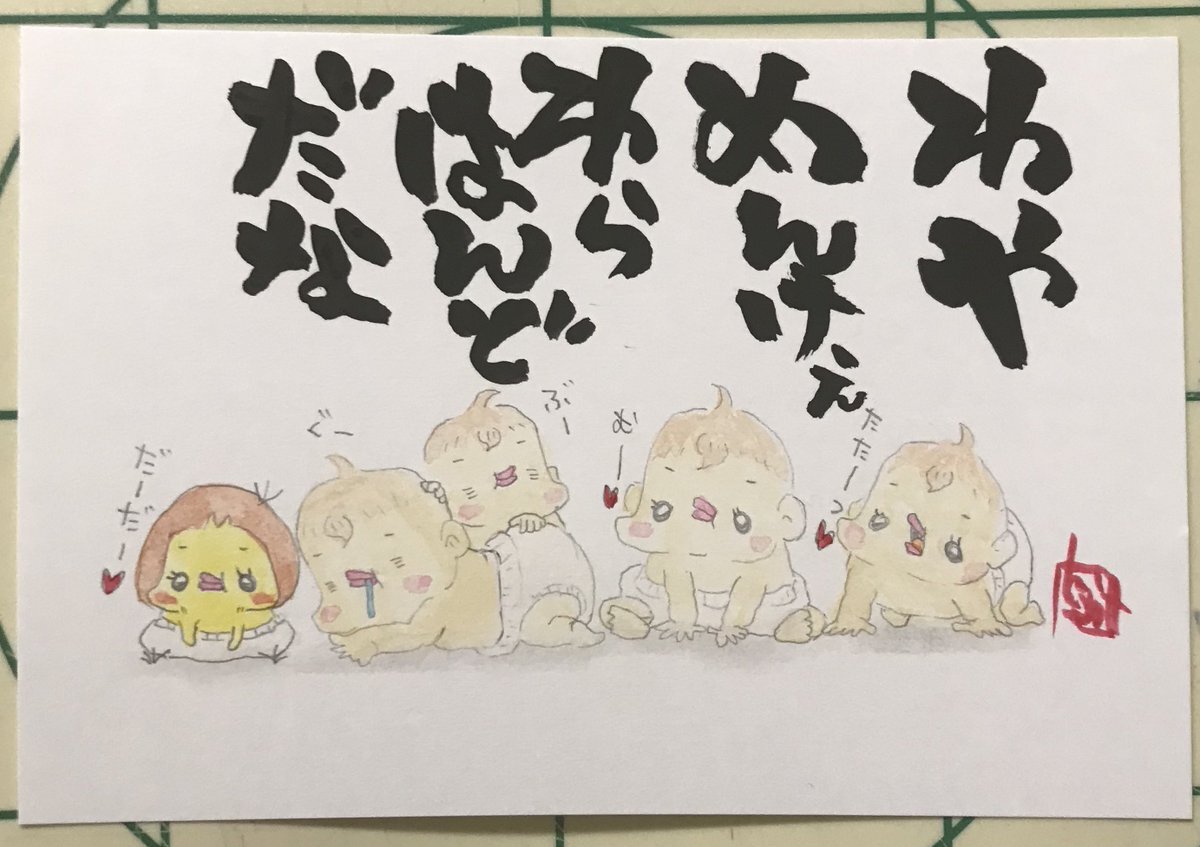 わや
めんけぇ
わら
はんど
だな
たたーっ
むー
ぶー
ぐー
だーだー